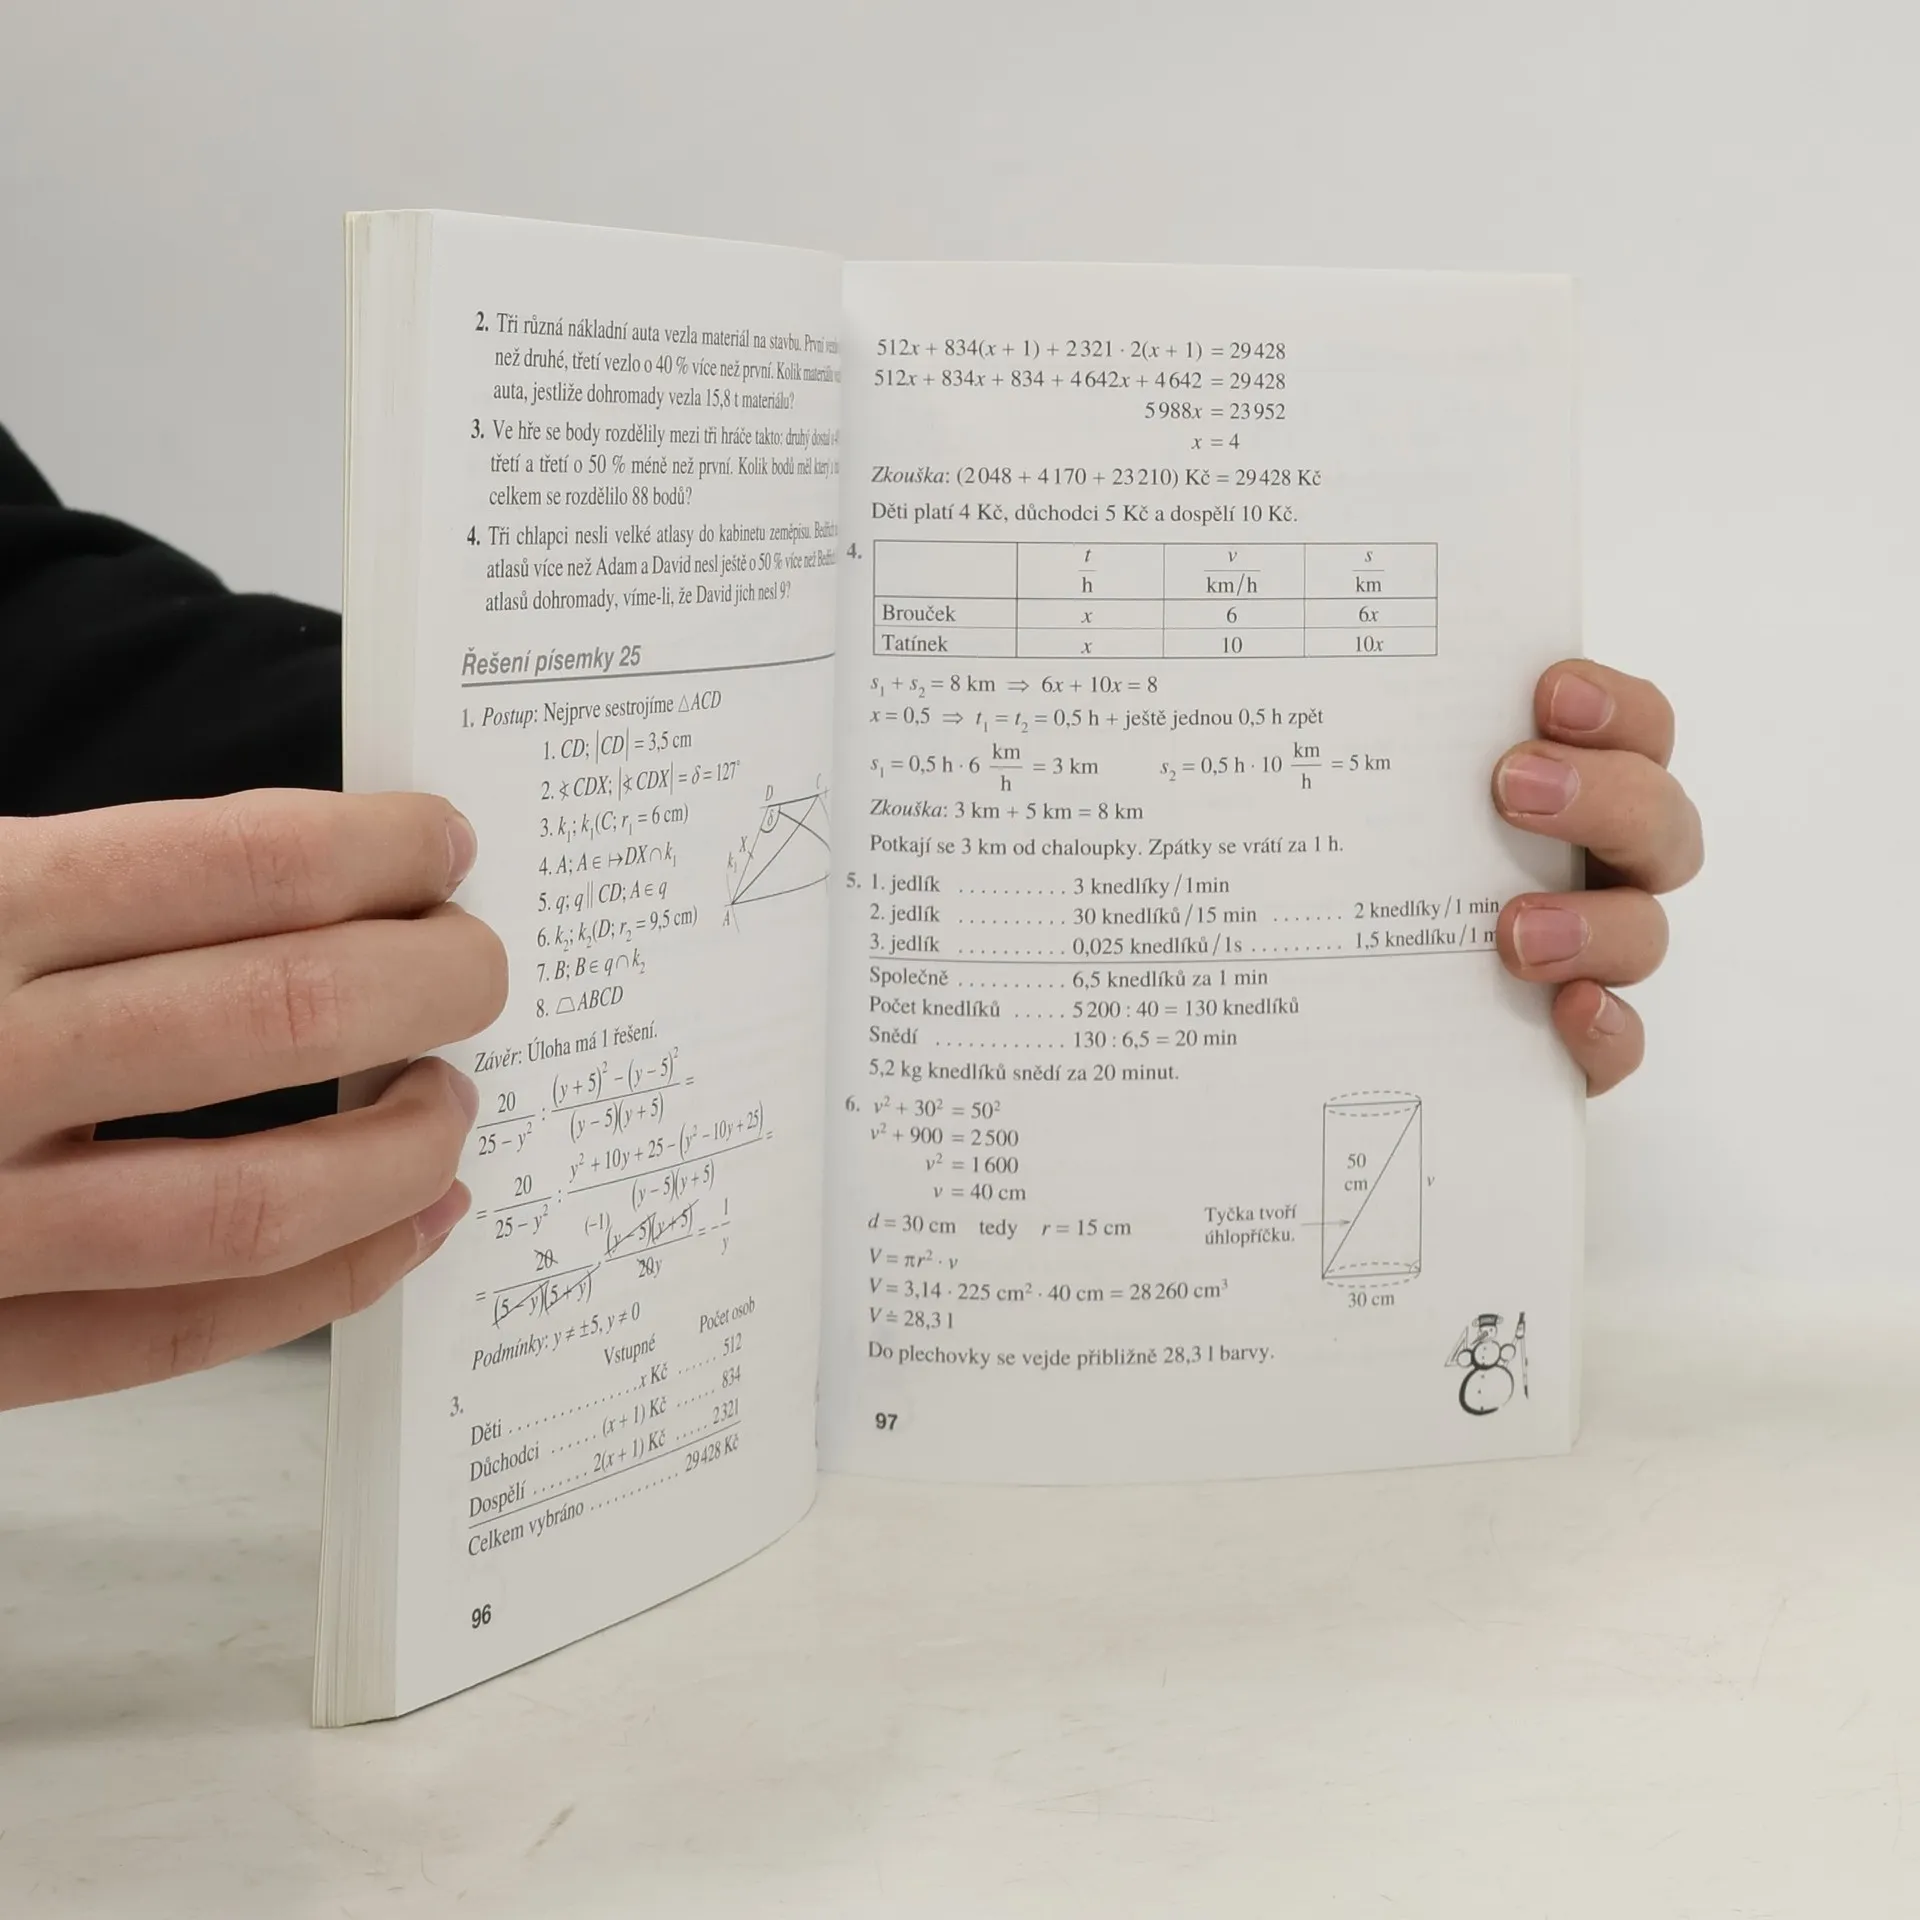 2. Tři různá nákladní auta vezla materiál na stavbu. První
než druhé, třetí vezlo o 40 % více než první. Kolik materiálu
auta, jestliže dohromady vezla 15,8 t materiálu?
3. Ve hře se body rozdělily mezi tři hráče takto: druhý dostal
třetí a třetí o 50 % méně než první. Kolik bodů měl
celkem se rozdělilo 88 bodů?
4. Tři chlapci nesli velké atlasy do kabinetu zeměpisu.
atlasů více než Adam a David nesl ještě o 50 % více než
atlasů dohromady, víme-li, že David jich nesl 9?
Řešení písemky 25
1. Postup: Nejprve sestrojíme △ACD
1. CD; |CD| = 3,5 cm
2. ∢CDX; |∢CDX| = δ = 127°
3. k₁; k₁(C; r₁ = 6 cm)
4. A; A ∈ ↦DX ∩ k₁
5. q; q || CD; A ∈ q
6. k₂; k₂(D; r₂ = 9,5 cm)
7. B; B ∈ q ∩ k₂
8. ⏢ABCD
D C δ X k₁ A
Závěr: Úloha má 1 řešení.
20/(25 – y²) : ((y + 5)² – (y – 5)²)/((y – 5)(y + 5)) =
= 20/(25 – y²) : (y² + 10y + 25 – (y² – 10y + 25))/((y – 5)(y + 5)) =
= 20/((5 – y)(5 + y)) · (–1)(y – 5)(y + 5)/20y = – 1/y
Podmínky: y ≠ ±5, y ≠ 0
3. Vstupné Počet osob
Děti .............. x Kč ...... 512
Důchodci ...... (x + 1) Kč ...... 834
Dospělí ....... 2(x + 1) Kč ..... 2321
Celkem vybráno ............ 29428 Kč
96
512x + 834(x + 1) + 2321 · 2(x + 1) = 29428
512x + 834x + 834 + 4642x + 4642 = 29428
5988x = 23952
x = 4
Zkouška: (2048 + 4170 + 23210) Kč = 29428 Kč
Děti platí 4 Kč, důchodci 5 Kč a dospělí 10 Kč.
4. t/h v/km/h s/km
Brouček x 6 6x
Tatínek x 10 10x
s₁ + s₂ = 8 km ⇒ 6x + 10x = 8
x = 0,5 ⇒ t₁ = t₂ = 0,5 h + ještě jednou 0,5 h zpět
s₁ = 0,5 h · 6 km/h = 3 km s₂ = 0,5 h · 10 km/h = 5 km
Zkouška: 3 km + 5 km = 8 km
Potkají se 3 km od chaloupky. Zpátky se vrátí za 1 h.
5. 1. jedlík .......... 3 knedlíky / 1min
2. jedlík .......... 30 knedlíků / 15 min ....... 2 knedlíky / 1 min
3. jedlík .......... 0,025 knedlíků / 1s ......... 1,5 knedlíku / 1
Společně .......... 6,5 knedlíků za 1 min
Počet knedlíků ..... 5200 : 40 = 130 knedlíků
Snědí ............ 130 : 6,5 = 20 min
5,2 kg knedlíků snědí za 20 minut.
6. v² + 30² = 50²
v² + 900 = 2500
v² = 1600
v = 40 cm
d = 30 cm tedy r = 15 cm
V = πr² · v
V = 3,14 · 225 cm² · 40 cm = 28260 cm³
V ≐ 28,3 l
Do plechovky se vejde přibližně 28,3 l barvy.
50
cm
v
Tyčka tvoří
úhlopříčku.
30 cm
97